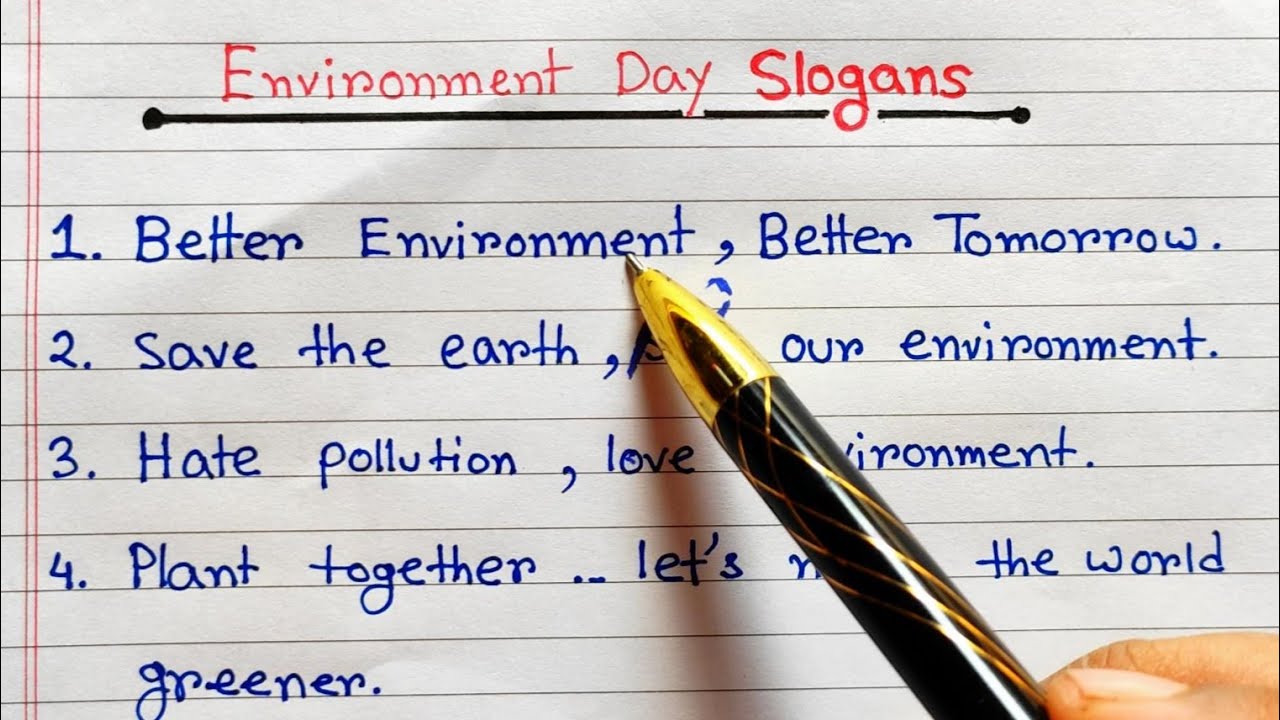 Environment Day Slogans
1. Better Environment, Better Tomorrow.
2. Save the earth, our environment.
3. Hate pollution, love
4. Plant together... let's the world
greener.